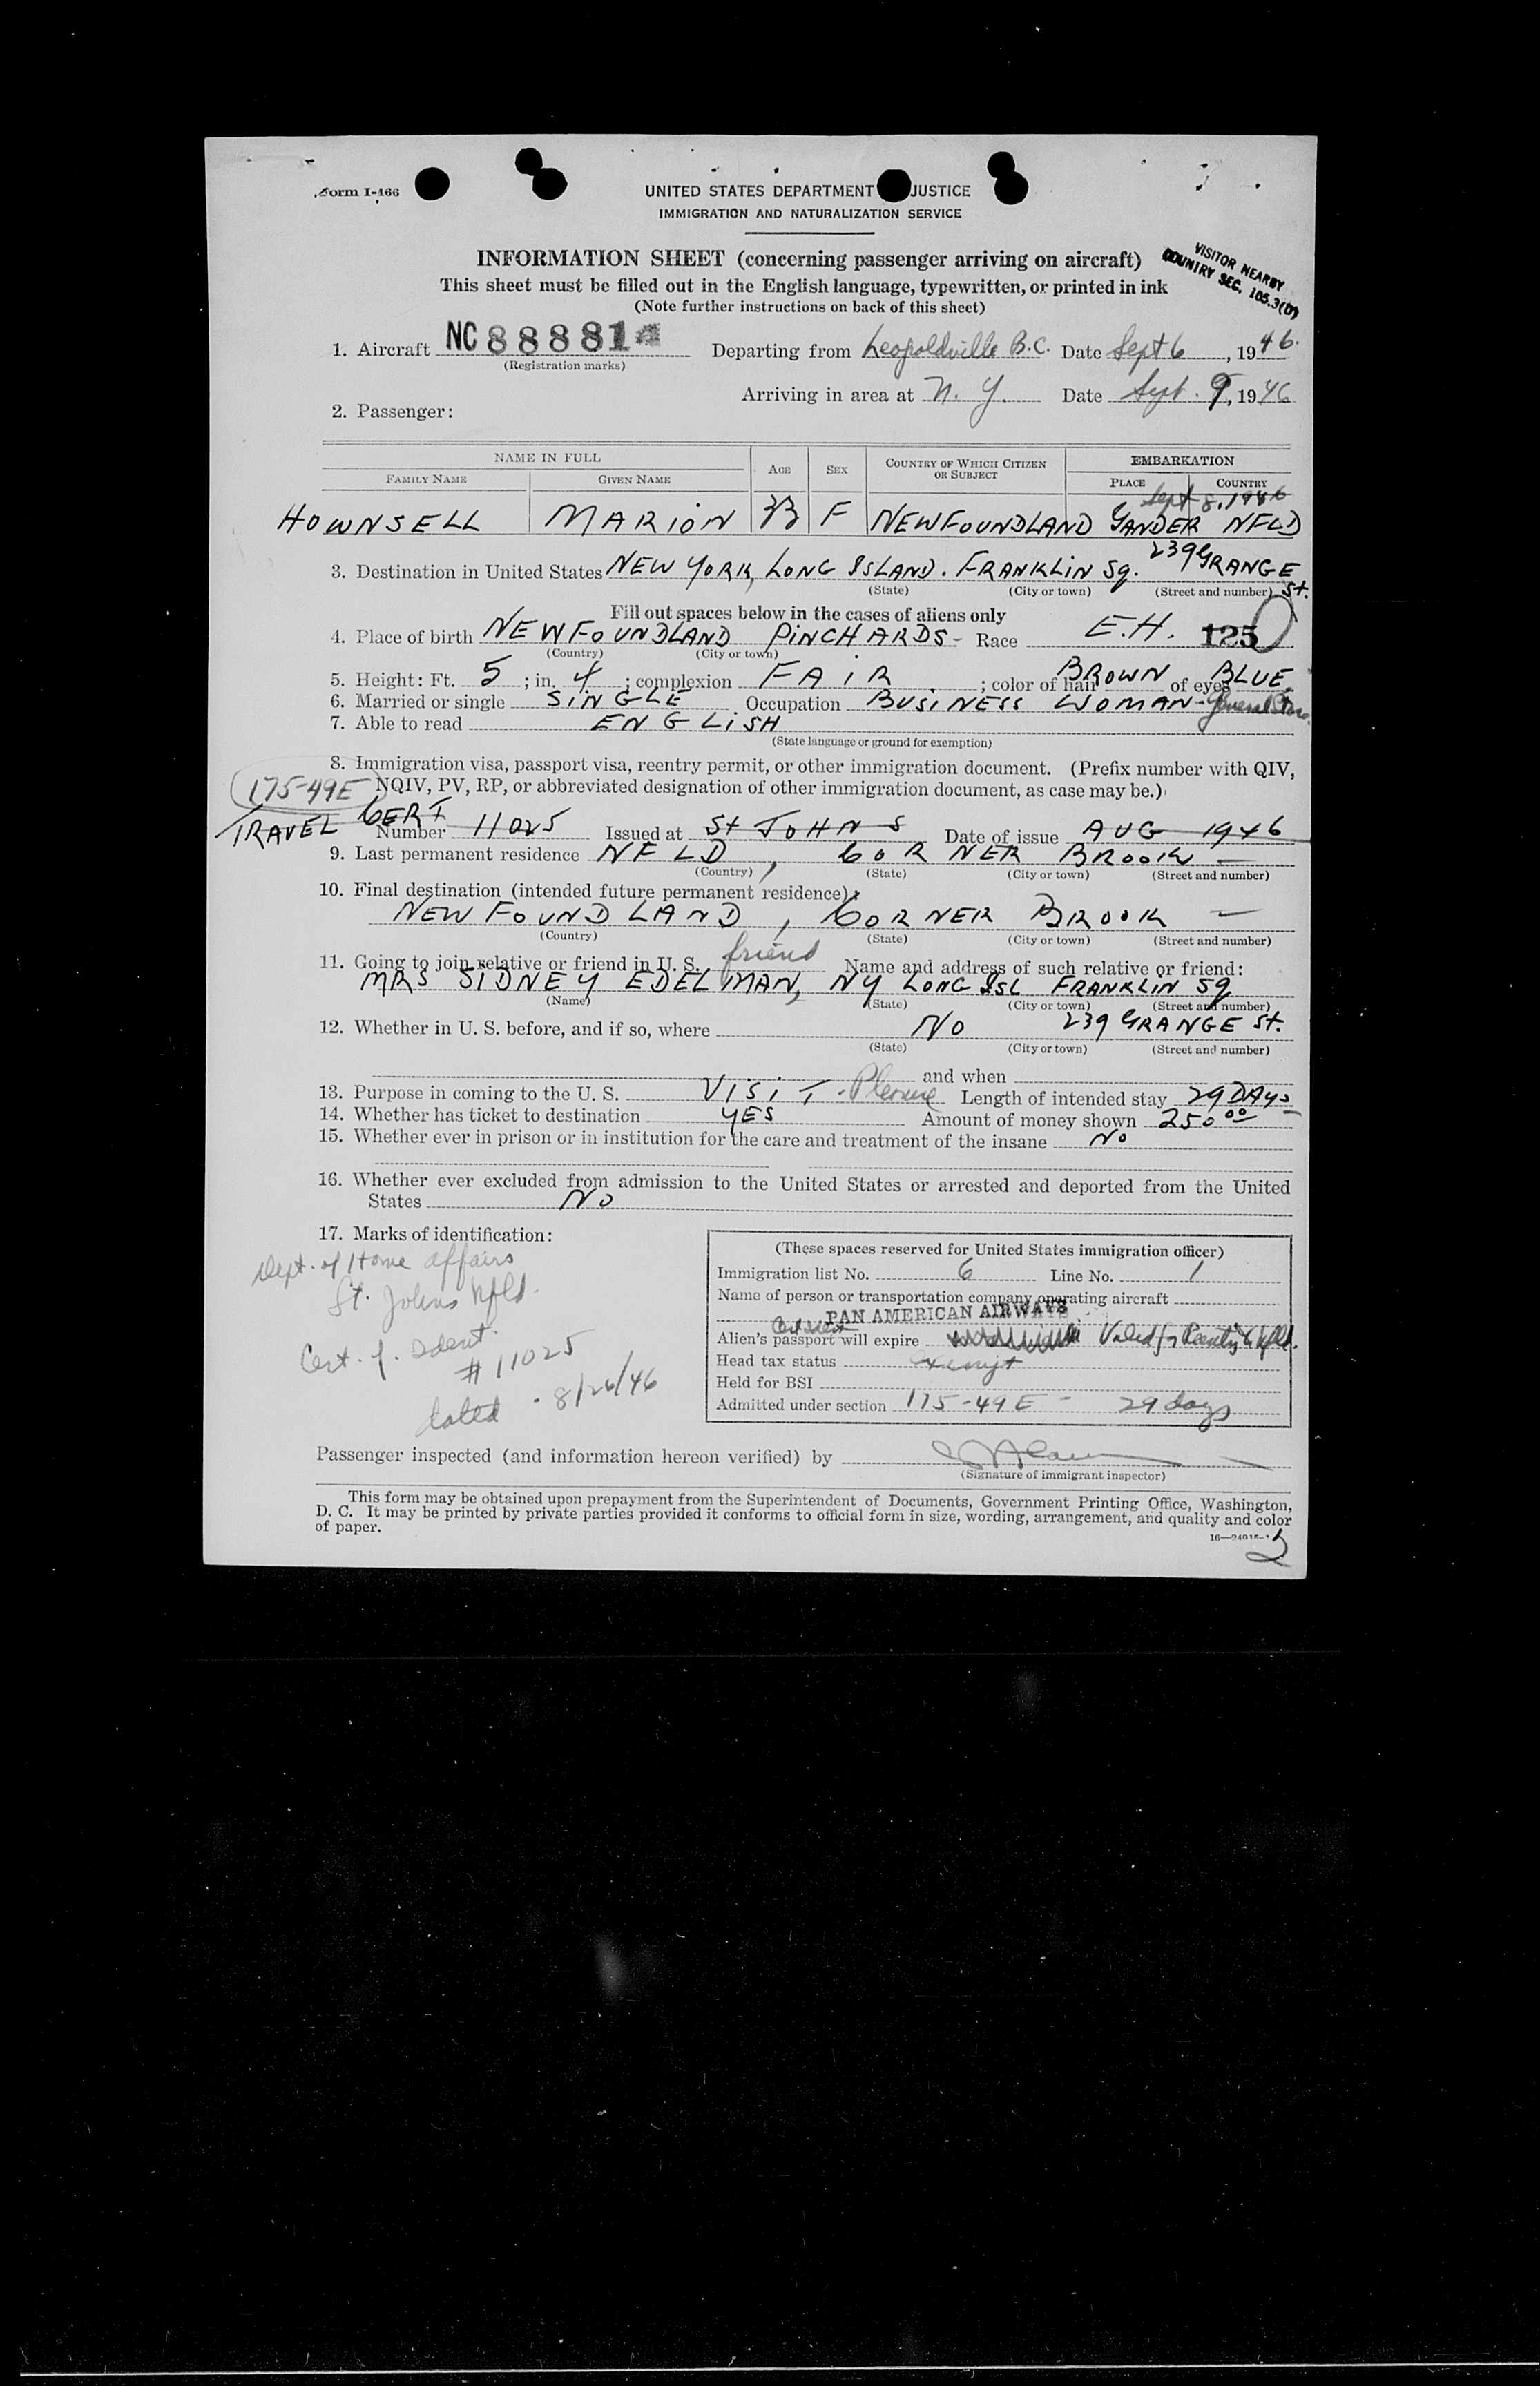 Form I-466
UNITED STATES DEPARTMENT JUSTICE
IMMIGRATION AND NATURALIZATION SERVICE
INFORMATION SHEET (concerning passenger arriving on aircraft)
VISITOR NEARBY
COUNTRY SEC. 105.3(D)
This sheet must be filled out in the English language, typewritten, or printed in ink
(Note further instructions on back of this sheet)
1. Aircraft NC 88881 Departing from Leopoldville B.C. Date Sept 6, 1946.
(Registration marks)
Arriving in area at N. Y. Date Sept. 9, 1946
2. Passenger:
NAME IN FULL AGE SEX COUNTRY OF WHICH CITIZEN OR SUBJECT EMBARKATION
FAMILY NAME GIVEN NAME PLACE COUNTRY
Sept 8, 1946
HOWNSELL MARION F NEWFOUNDLAND GANDER NFLD
3. Destination in United States NEW YORK, LONG ISLAND. FRANKLIN SQ. 239 GRANGE St.
(State) (City or town) (Street and number)
Fill out spaces below in the cases of aliens only
4. Place of birth NEWFOUNDLAND PINCHARDS - Race E.H. 125
(Country) (City or town)
5. Height: Ft. 5; in. 4; complexion FAIR; color of hair BROWN of eyes BLUE
6. Married or single SINGLE Occupation BUSINESS WOMAN - General Store
7. Able to read ENGLISH
(State language or ground for exemption)
8. Immigration visa, passport visa, reentry permit, or other immigration document. (Prefix number with QIV,
175-49E NQIV, PV, RP, or abbreviated designation of other immigration document, as case may be.)
TRAVEL CERT Number 11025 Issued at St JOHNS Date of issue AUG 1946
9. Last permanent residence NFLD, CORNER BROOK —
(Country) (State) (City or town) (Street and number)
10. Final destination (intended future permanent residence):
NEWFOUNDLAND, CORNER BROOK —
(Country) (State) (City or town) (Street and number)
11. Going to join relative or friend in U. S. friend Name and address of such relative or friend:
MRS SIDNEY EDELMAN, NY LONG ISL FRANKLIN SQ
(Name) (State) (City or town) (Street and number)
12. Whether in U. S. before, and if so, where NO 239 GRANGE St.
(State) (City or town) (Street and number)
and when
13. Purpose in coming to the U. S. VISIT - Pleasure Length of intended stay 29 DAYS
14. Whether has ticket to destination YES Amount of money shown 250.00
15. Whether ever in prison or in institution for the care and treatment of the insane No
16. Whether ever excluded from admission to the United States or arrested and deported from the United
States NO
17. Marks of identification:
Dept. of Home affairs
St. Johns Nfld.
Cert. of. Ident.
# 11025
dated - 8/26/46
(These spaces reserved for United States immigration officer)
Immigration list No. 6 Line No. 1
Name of person or transportation company operating aircraft
PAN AMERICAN AIRWAYS
Alien's passport will expire Valid for Reentry to Nfld.
Head tax status exempt
Held for BSI
Admitted under section 175-49E - 29 days
Passenger inspected (and information hereon verified) by
(Signature of immigrant inspector)
This form may be obtained upon prepayment from the Superintendent of Documents, Government Printing Office, Washington,
D. C. It may be printed by private parties provided it conforms to official form in size, wording, arrangement, and quality and color
of paper.
2